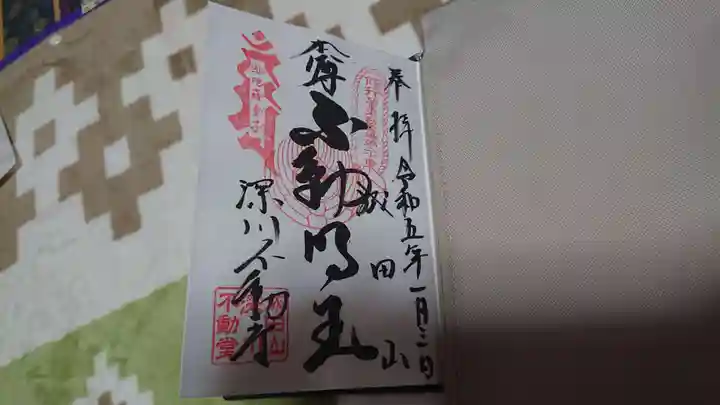 奉拝
令和五年一月三日
成田山
本尊
不動明王
深川不動堂
不動堂